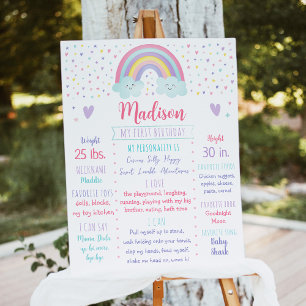 Madison
MY FIRST BIRTHDAY
Weight
25 lbs.
NICKNAME
Maddie
FAVORITE TOYS
dolls, blocks,
my toy kitchen
I CAN SAY
Mama, Dada
bye bye
MY PERSONALITY IS
Curious Silly Happy
Sweet Lovable Adventurous
I LOVE
the playground, laughing,
running, playing with my big
brother, eating, bath time
I CAN
Pull myself up to stand,
walk holding onto your hands,
clap my hands, feed myself,
shake my head no, wave hi
Height
30 in.
FAVORITE FOODS
Chicken nuggets,
apples, cheese,
pasta, cereal
FAVORITE BOOK
Goodnight
Moon
FAVORITE SONG
Baby
Shark